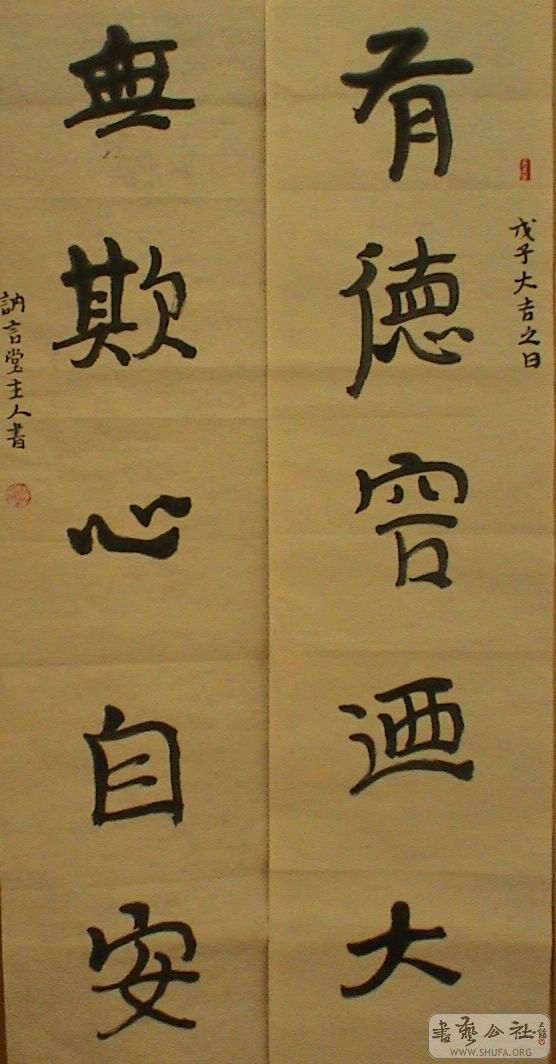 有德容迺大
戊子大吉之日
無欺心自安
訥言堂主人書
書藝公社
WWW.SHUFA.ORG